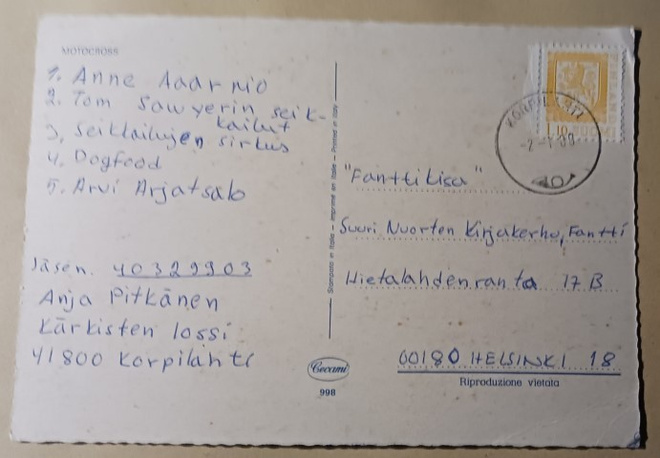 MOTOCROSS
1. Anne Aarnio
2. Tom Sawyerin seik-
kailut
3. Seikkailujen sirkus
4. Dogfood
5. Arvi Arjatsalo
Jäsen. 40329903
Anja Pitkänen
Kärkisten lossi
41800 Korpilahti
Stampato in Italia — Imprimé en Italie — Printed in Italy
Cecami
998
KORPILAHTI
10 SUOMI
"Fanttikisa"
Suuri Nuorten Kirjakerho, Fantti
Hietalahdenranta 17 B
00180 HELSINKI 18
Riproduzione vietata